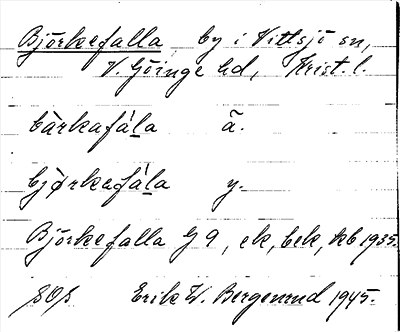 Björkefalla by i Vittsjö sn,
V. Göinge hd, Krist. l.
bàrkafála ä.
bjørkafála y.
Björkefalla G 9, ek, bek, kb 1935.
SOS Erik W. Bergenrud 1945.